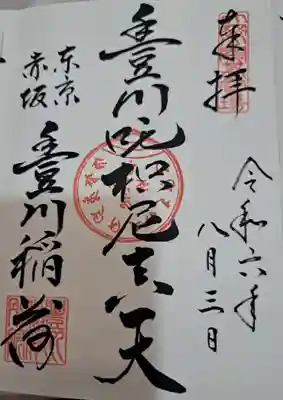 奉拝
令和六年
八月三日
豊川吒枳尼真天
东京
赤坂
豊川稲荷